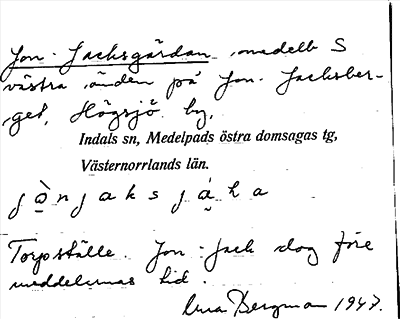 Jon-Jacksgårdan omedelb S
västra änden på Jon-Jacksber-
get, Högsjö by,
Indals sn, Medelpads östra domsagas tg,
Västernorrlands län.
Torpställe. Jon-Jack dog före
meddelernas tid.
Bergman 1947.